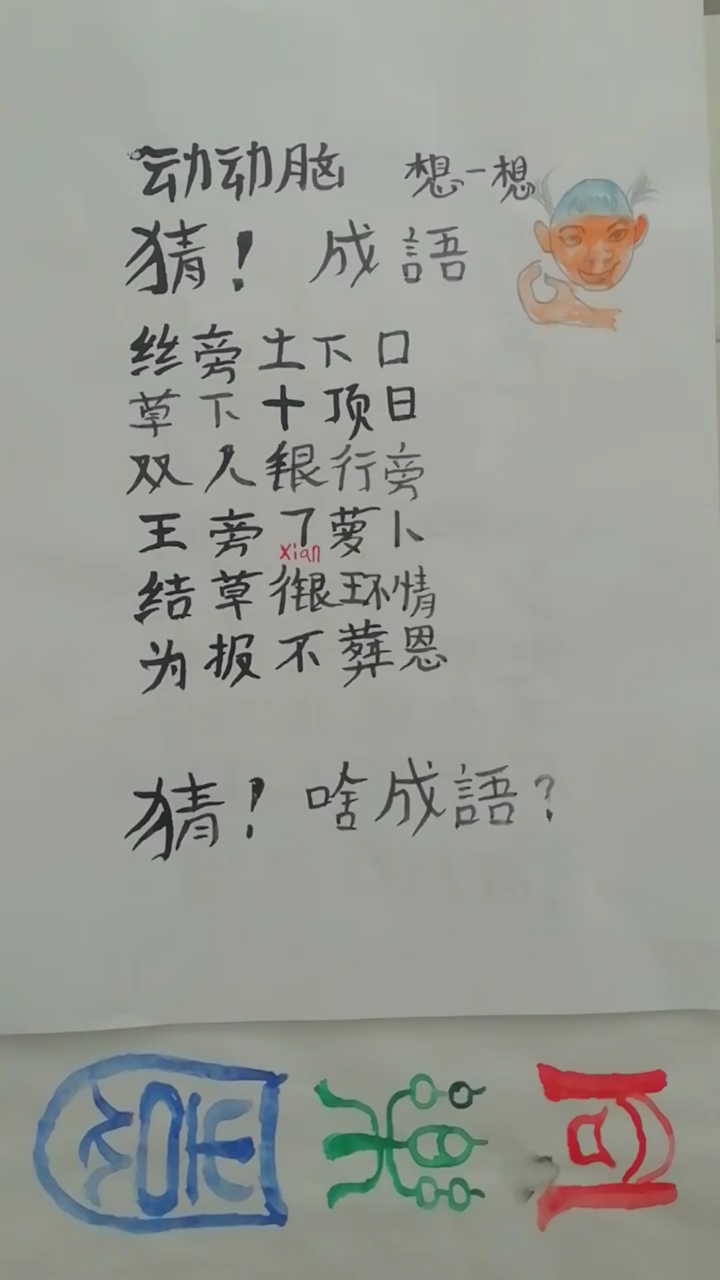 动动脑 想一想
猜！ 成語
丝旁土下口
草下十顶日
双人银行旁
王旁丆萝卜
xian
结草衔环情
为报不葬恩
猜！啥成語？